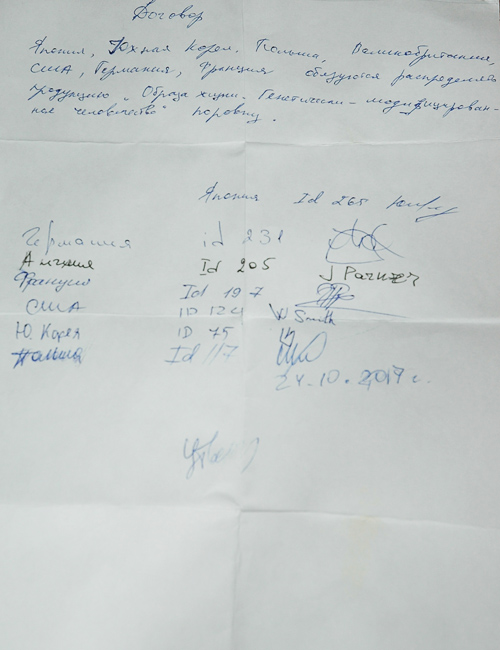 Договор
Япония, Южная Корея, Польша, Великобритания,
США, Германия, Франция обязуются распределять
продукцию "Образа жизни. Генетически-модифицирован-
ное человечество" поровну.
Япония Id 265
Германия id 231
Англия Id 205 J Parker
Франция Id 197
США ID 124 W Smith
Ю. Корея ID 75
Польша Id 117
24.10.2017 г.